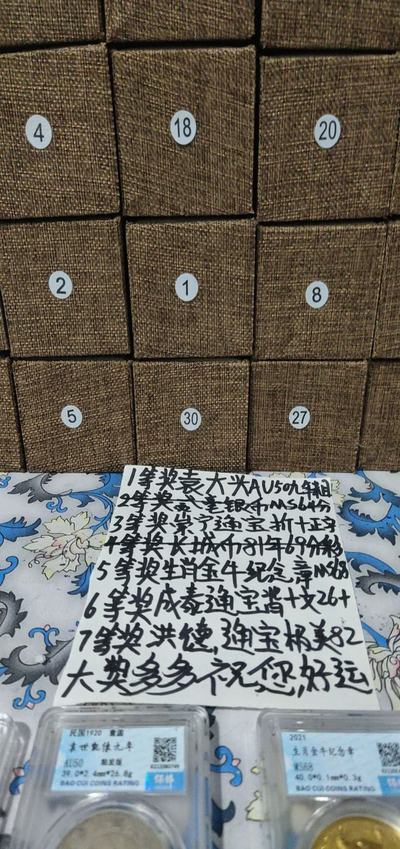 4
18
20
2
1
8
5
30
27
1等奖袁大头AU50九年
2等奖 银币MS64分
3等奖崇宁通宝折十
4等奖长城币81年69分
5等奖生肖金牛纪念章MS68
6等奖咸丰通宝当十文26+
7等奖洪德,通宝 美82
大奖多多祝您,好运
民国1920 壹圆
袁世凯像九年
AU50
39.0*2.4mm*26.8g
BAO CUI COINS RATING
2021
生肖金牛纪念章
MS68
40.0*0.1mm*0.3g
BAO CUI COINS RATING